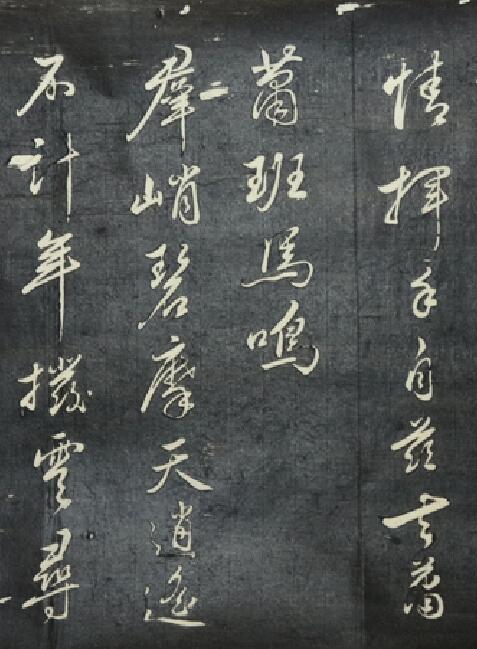 情揮手自茲去蕭
蕭班馬鳴
羣峭碧摩天逍遙
不計年撥雲尋